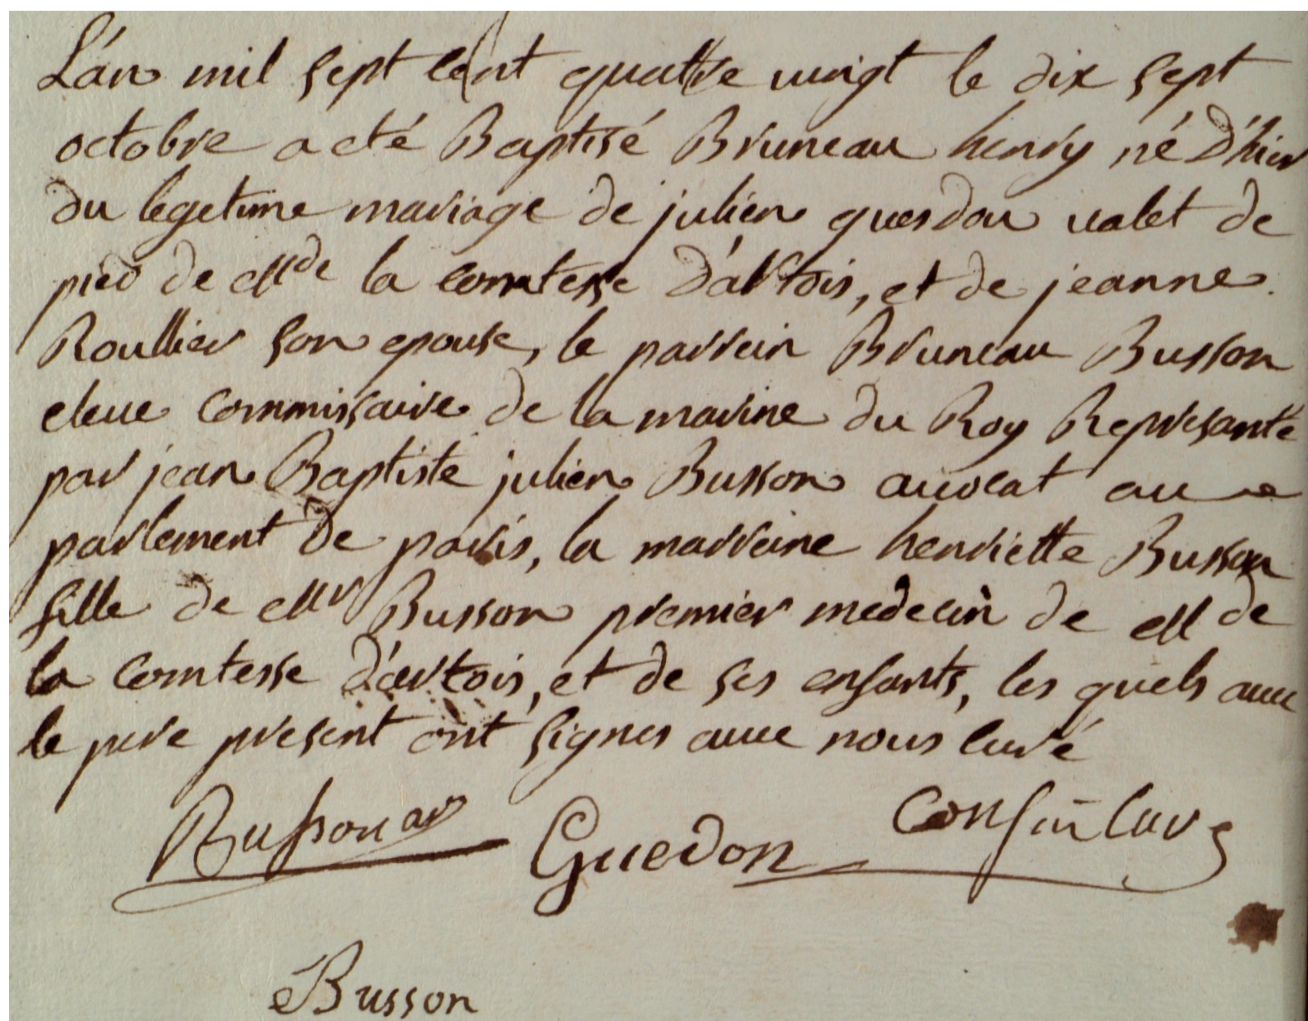 L'an mil sept cent quattre vingt le dix sept
octobre a eté Baptisé Bruneau henry né D'hier
du legetime mariage de julien guesdon valet de
pied de Mde la comtesse D'artois, et de jeanne
Roullier son epouse, le parrein Bruneau Busson
eleve commissaire de la marine du Roy Represanté
par jean Baptiste julien Busson avocat au
parlement de paris, la marreine henriette Busson
fille de Mr Busson premier medecin de Mde
la comtesse D'artois, et de ses enfants, les quels avec
le pere present ont signes avec nous curé
Busson av
Guedon
Curé
Busson